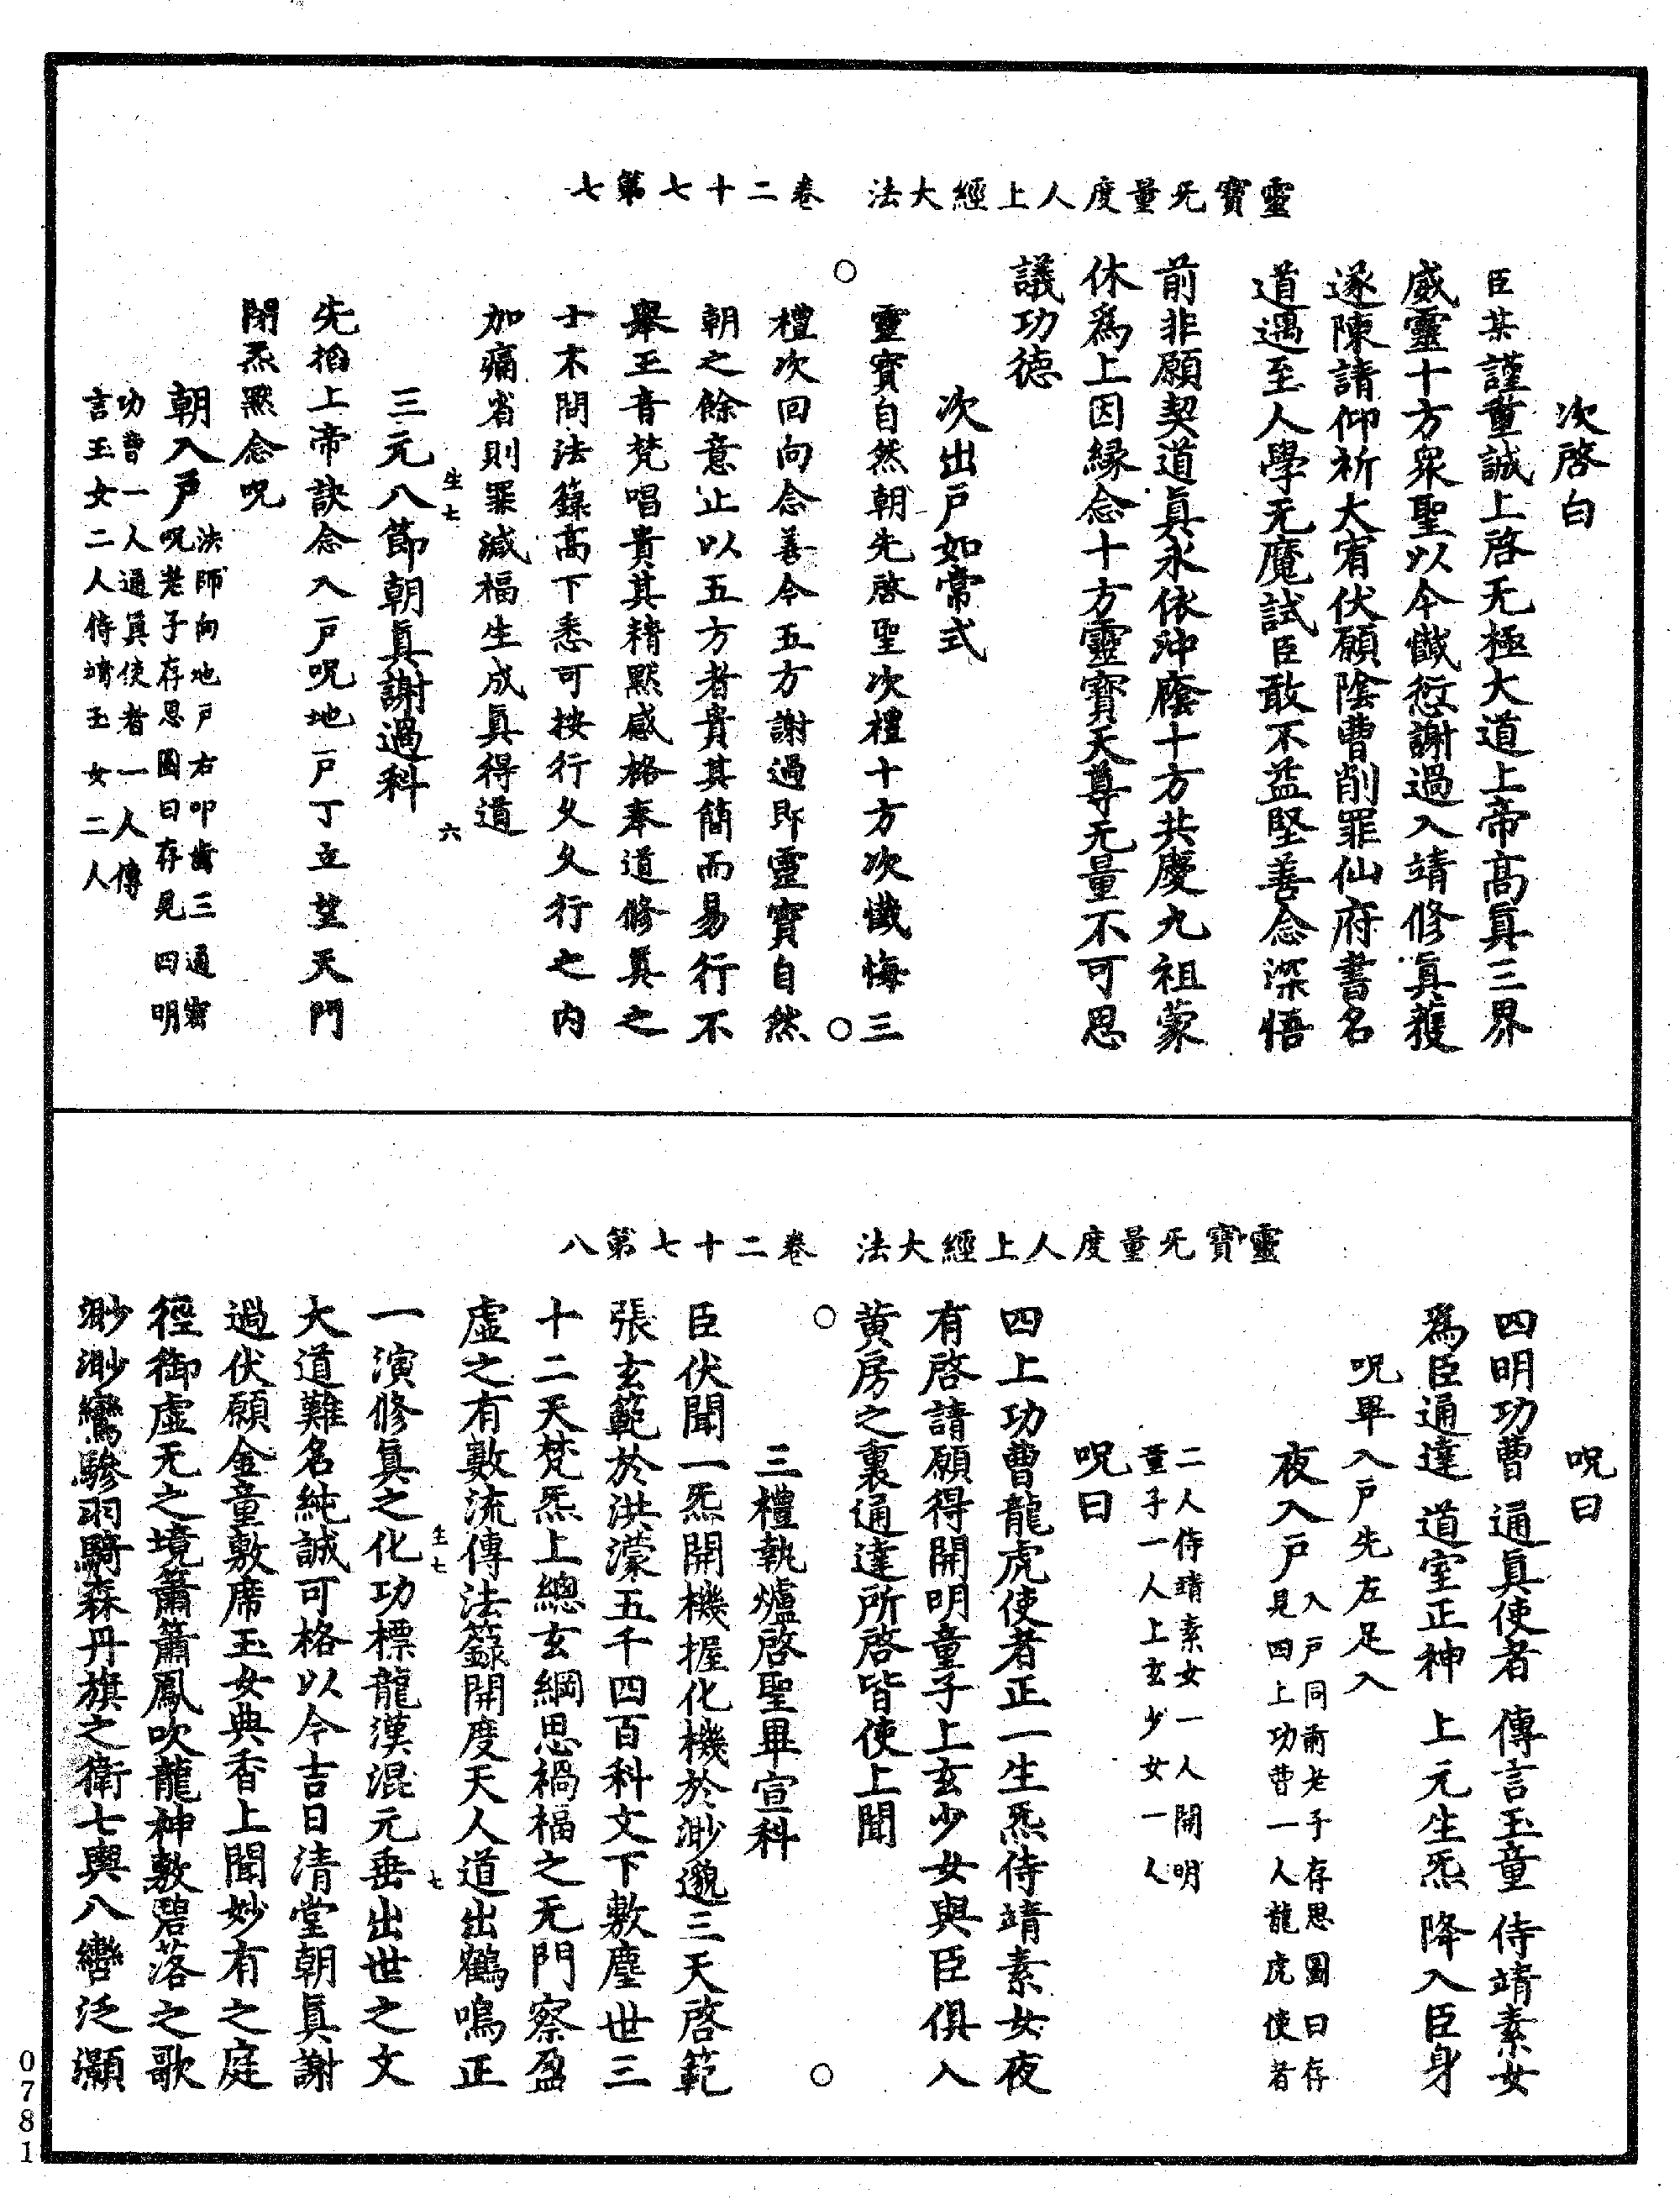 靈寶无量度人上經大法　卷二十七第七
次啓白
臣某謹重誠上啓无極大道上帝高眞三界
威靈十方衆聖以今懺愆謝過入靖修眞䕶
遂陳請仰祈大宥伏願陰曹削罪仙府書名
道遇至人學无魔試臣敢不益堅善念深悟
前非願契道眞永依沖廕十方共慶九祖蒙
休爲上因緣念十方靈寶天尊无量不可思
議功德
次出戶如常式
靈寶自然朝先啓聖次禮十方次懺悔三
禮次回向念善今五方謝過即靈寶自然
朝之餘意止以五方者貴其簡而易行不
舉玉音梵唱貴其精默感格奉道修眞之
士不問法籙高下悉可按行久久行之内
加痛省則罪減福生成眞得道
生七　六
三元八節朝眞謝過科
先掐上帝訣念入戶呪地戶丁立望天門
閉炁默念呪
朝入戶法師向地戶右叩齒三通密
呪老子存思圖曰存見四明
功曹一人通眞使者一人傳
言玉女二人侍靖玉女二人
靈寶无量度人上經大法　卷二十七第八
呪曰
四明功曹　通眞使者　傳言玉童　侍靖素女
爲臣通達　道室正神　上元生炁　降入臣身
呪畢入戶先左足入
夜入戶入戶同前老子存思圖曰存
見四上功曹一人龍虎使者
二人侍靖素女一人開明
童子一人上玄少女一人
呪曰
四上功曹龍虎使者正一生炁侍靖素女夜
有啓請願得開明童子上玄少女與臣俱入
黃房之裏通達所啓皆使上聞
三禮執爐啓聖畢宣科
臣伏聞一炁開機握化機於渺邈三天啓範
張玄範於洪濛五千四百科文下敷塵世三
十二天梵炁上總玄綱思禍福之无門察盈
虛之有數流傳法籙開度天人道出鶴鳴正
生七　七
一演修眞之化功標龍漢混元垂出世之文
大道難名純誠可格以今吉日清堂朝眞謝
過伏願金童敷席玉女典香上聞妙有之庭
徑御虛无之境簫簫鳳吹龍神敷碧落之歌
渺渺鸞驂羽騎森丹旗之衛七輿八轡泛灝
0781